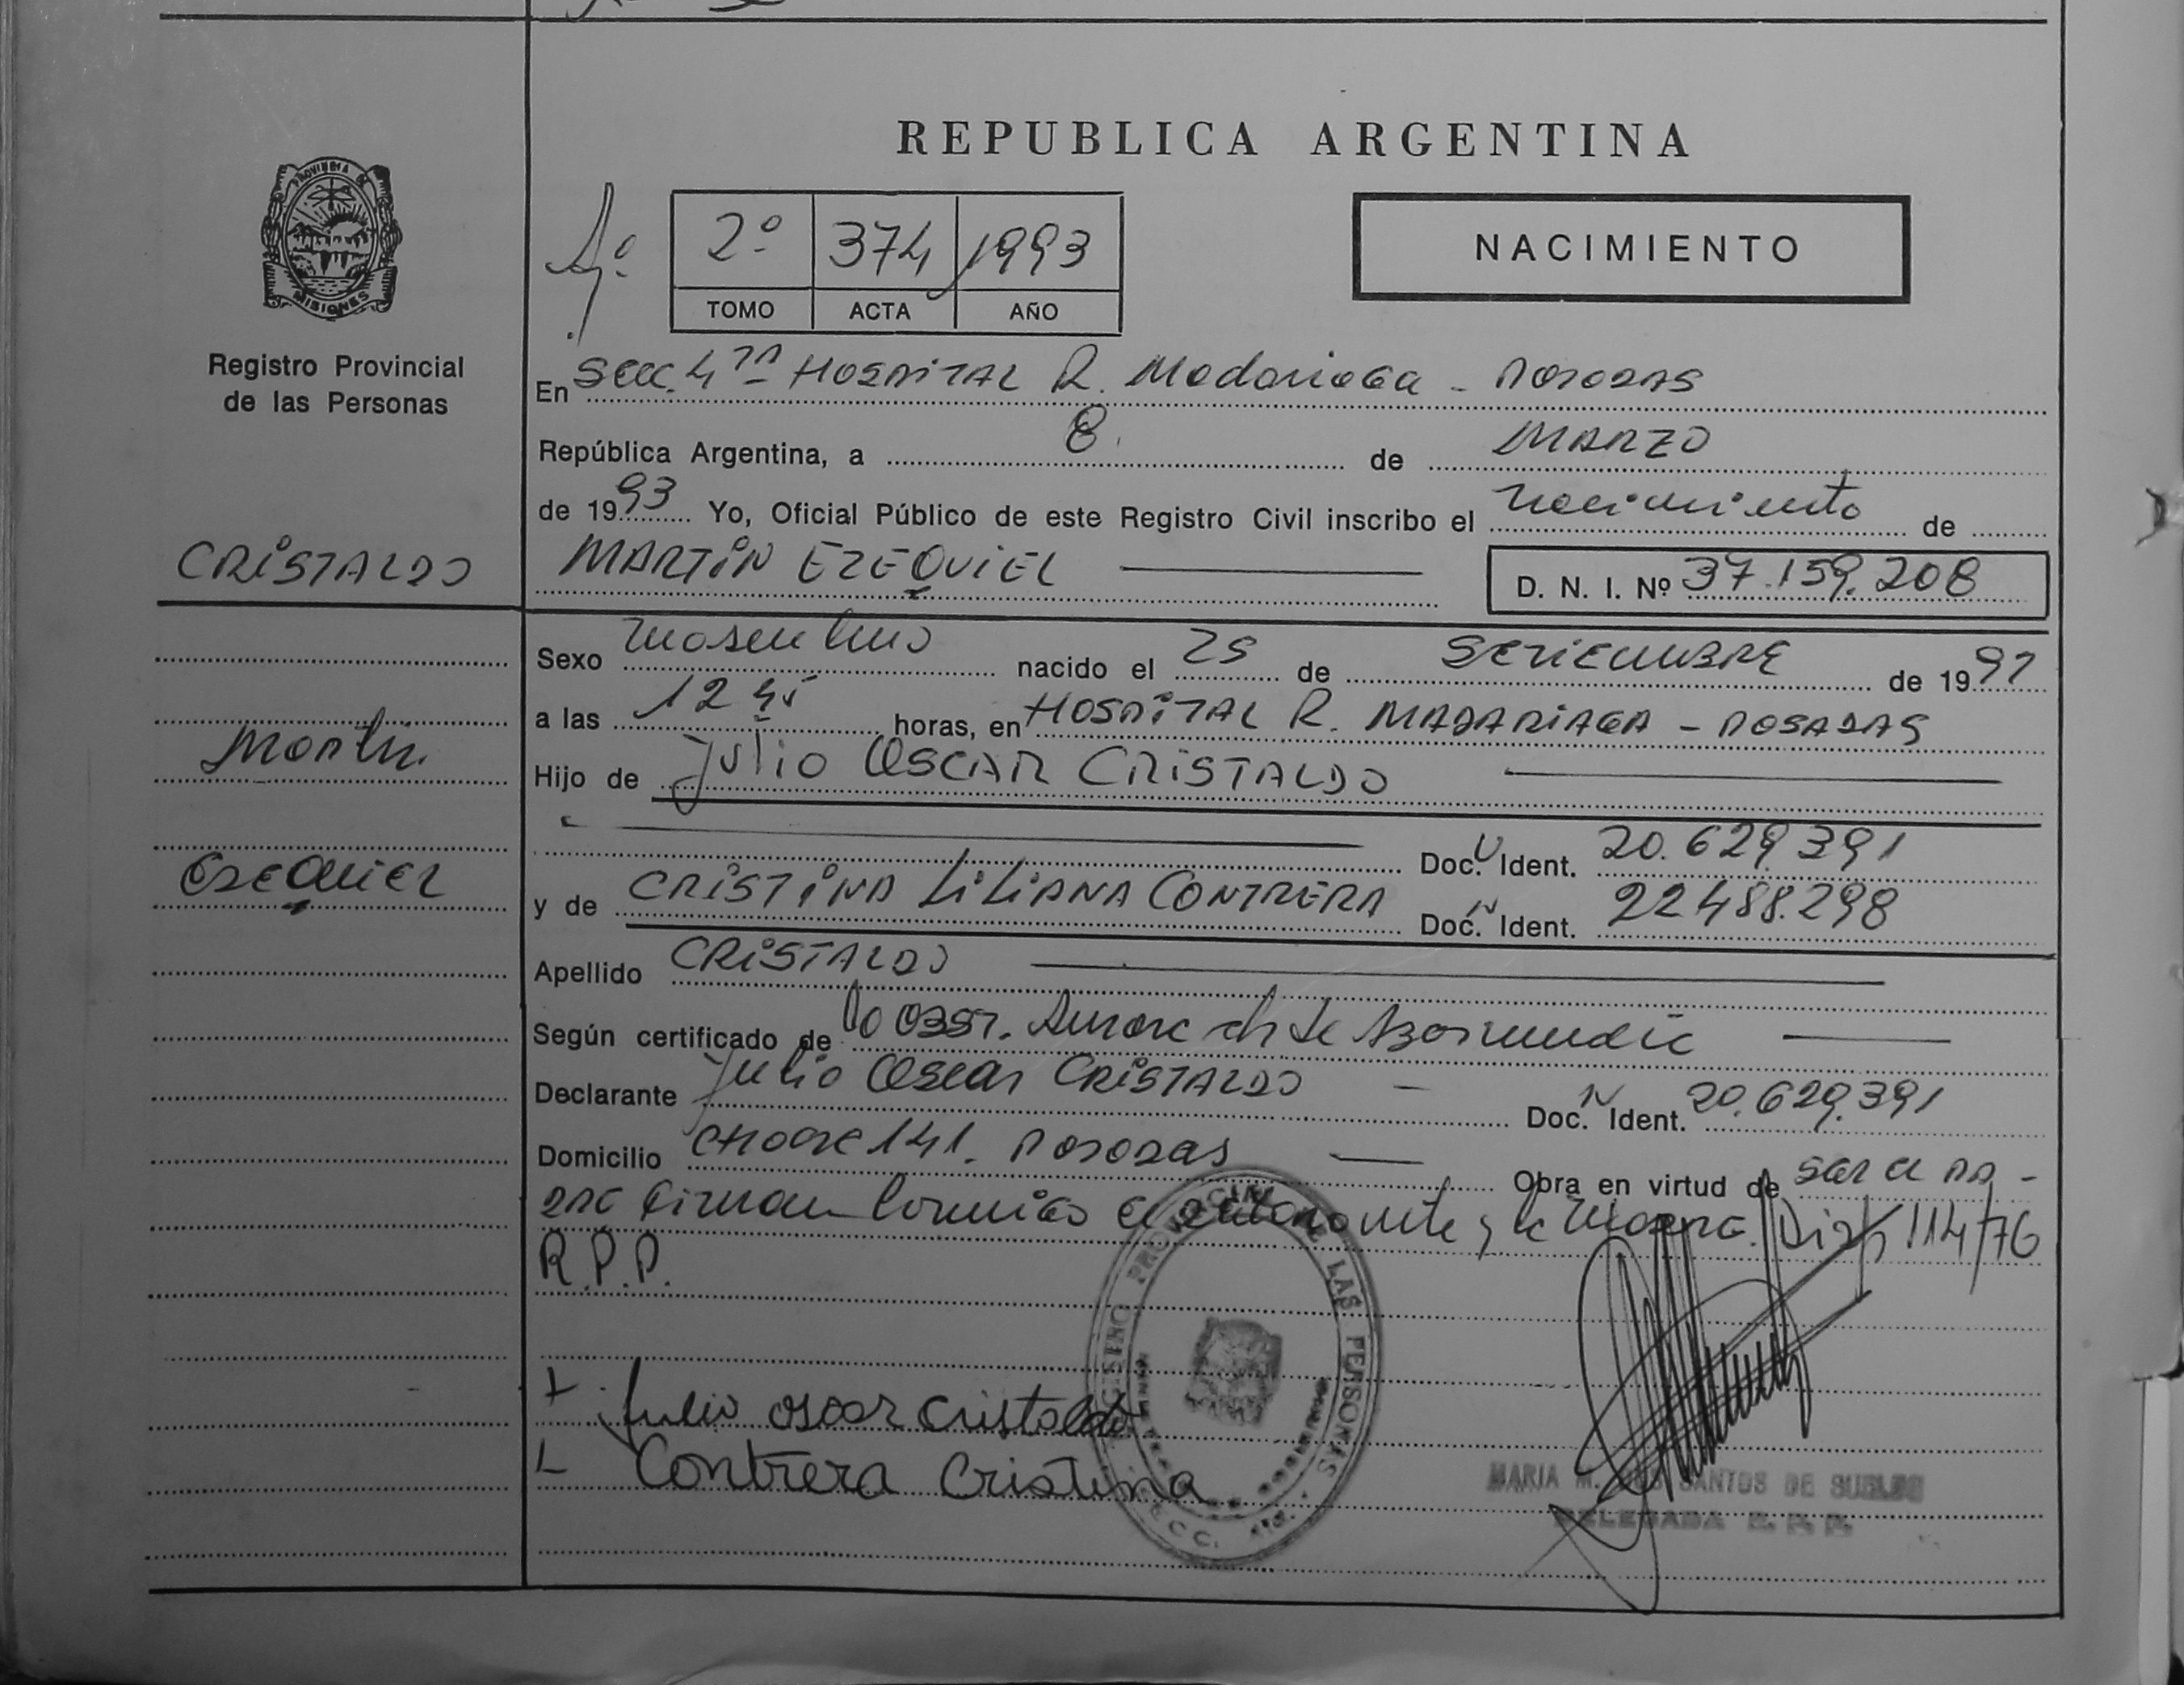 REPUBLICA ARGENTINA
PROVINCIA DE
MISIONES
Registro Provincial
de las Personas
2º 374 1993
TOMO ACTA AÑO
NACIMIENTO
En Secc. 4ta HOSPITAL R. Madariaga - POSADAS
República Argentina, a 8 de MARZO
de 1993 Yo, Oficial Público de este Registro Civil inscribo el nacimiento de
CRISTALDO
MARTIN EZEQUIEL
D. N. I. Nº 37.159.208
Sexo masculino nacido el 25 de SETIEMBRE de 1992
a las 12 45 horas, en HOSPITAL R. MADARIAGA - POSADAS
Martin
Hijo de Julio OSCAR CRISTALDO
Doc. Ident. 20.629.391
Ezequiel
y de CRISTINA LILIANA CONTRERA Doc. Ident. 22488.298
Apellido CRISTALDO
Según certificado de la OBST.
Declarante Julio Oscar CRISTALDO Doc. Ident. 20.629.391
Domicilio 141. Posadas Obra en virtud de ser el pa-
dre Firman conmigo el y la madre. 114/76
R.P.P.
Julio oscar cristaldo
Contrera Cristina
REGISTRO PROVINCIAL LAS PERSONAS
MARIA M. SANTOS DE
DELEGADA R. P. P.